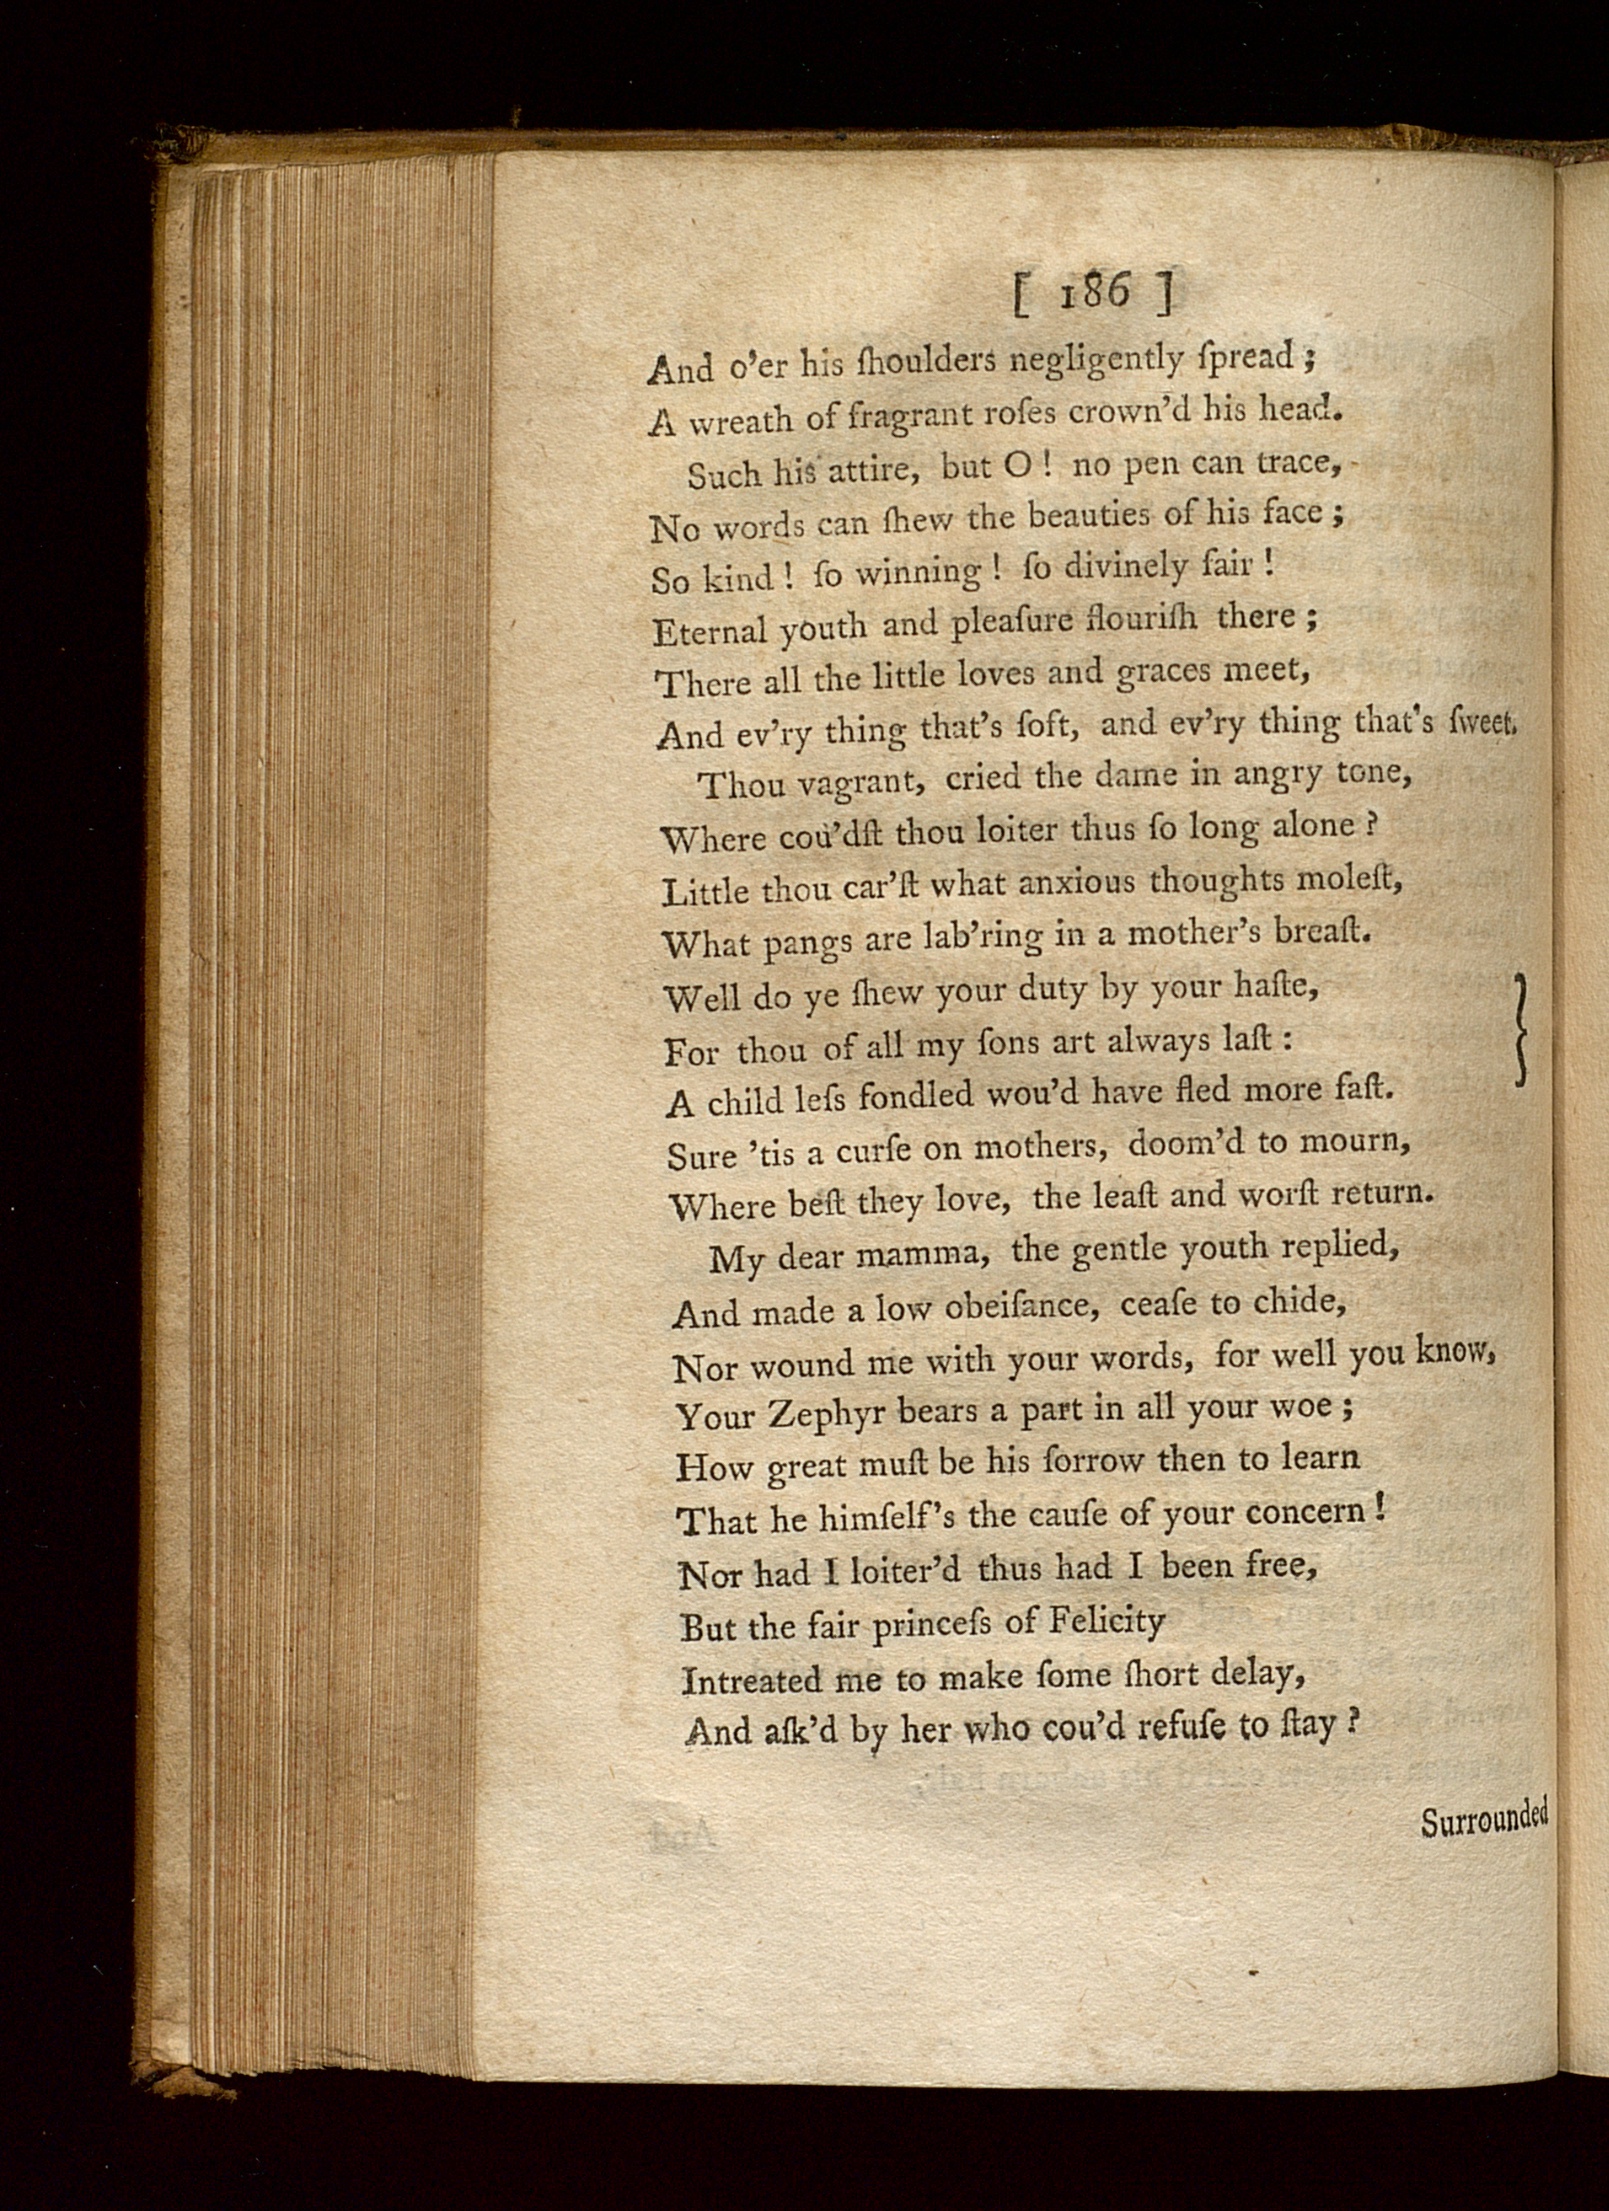 [ 186 ]
And o'er his ſhoulders negligently ſpread ;
A wreath of fragrant roſes crown'd his head.
Such his attire, but O ! no pen can trace,
No words can ſhew the beauties of his face ;
So kind ! ſo winning ! ſo divinely fair !
Eternal youth and pleaſure flouriſh there ;
There all the little loves and graces meet,
And ev'ry thing that's ſoft, and ev'ry thing that's ſweet.
Thou vagrant, cried the dame in angry tone,
Where cou'dſt thou loiter thus ſo long alone ?
Little thou car'ſt what anxious thoughts moleſt,
What pangs are lab'ring in a mother's breaſt.
Well do ye ſhew your duty by your haſte,
For thou of all my ſons art always laſt :
A child leſs fondled wou'd have fled more faſt.
Sure 'tis a curſe on mothers, doom'd to mourn,
Where beſt they love, the leaſt and worſt return.
My dear mamma, the gentle youth replied,
And made a low obeiſance, ceaſe to chide,
Nor wound me with your words, for well you know,
Your Zephyr bears a part in all your woe ;
How great muſt be his ſorrow then to learn
That he himſelf's the cauſe of your concern !
Nor had I loiter'd thus had I been free,
But the fair princeſs of Felicity
Intreated me to make ſome ſhort delay,
And aſk'd by her who cou'd refuſe to ſtay ?
Surrounded